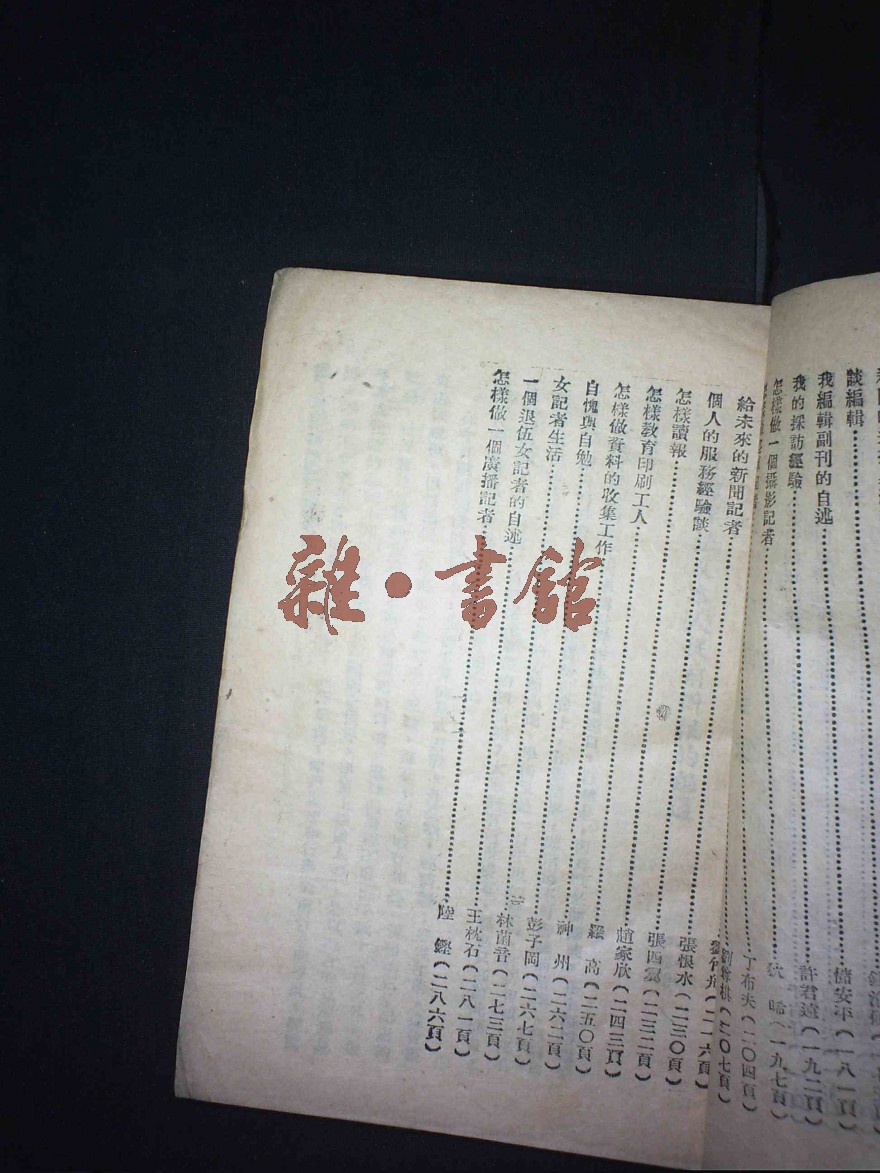 談編輯……儲安平（一八一頁）
我編輯副刊的自述……許君遠（一九二頁）
我的採訪經驗……晞（一九七頁）
怎樣做一個攝影記者……丁布夫（二〇四頁）
劉尊棋（二〇七頁）
劉竹舟（二一六頁）
給未來的新聞記者……張恨水（二三〇頁）
個人的服務經驗談……張四（二三二頁）
怎樣讀報……趙家欣（二四三頁）
怎樣教育印刷工人……羅　高（二五〇頁）
怎樣做資料的收集工作……神　州（二六二頁）
自愧與自勉……彭子岡（二六七頁）
女記者生活……林菌音（二七三頁）
一個退伍女記者的自述……王枕石（二八一頁）
怎樣做一個廣播記者……陸　鏗（二八六頁）
雜·書館